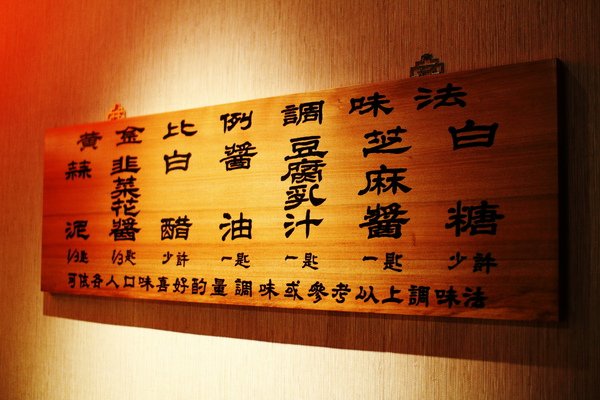 黃金比例調味法
蒜泥 1/3匙
韭菜花醬 1/3匙
白醋 少許
醬油 一匙
豆腐乳汁 一匙
芝麻醬 一匙
白糖 少許
可依各人口味喜好酌量調味或參考以上調味法